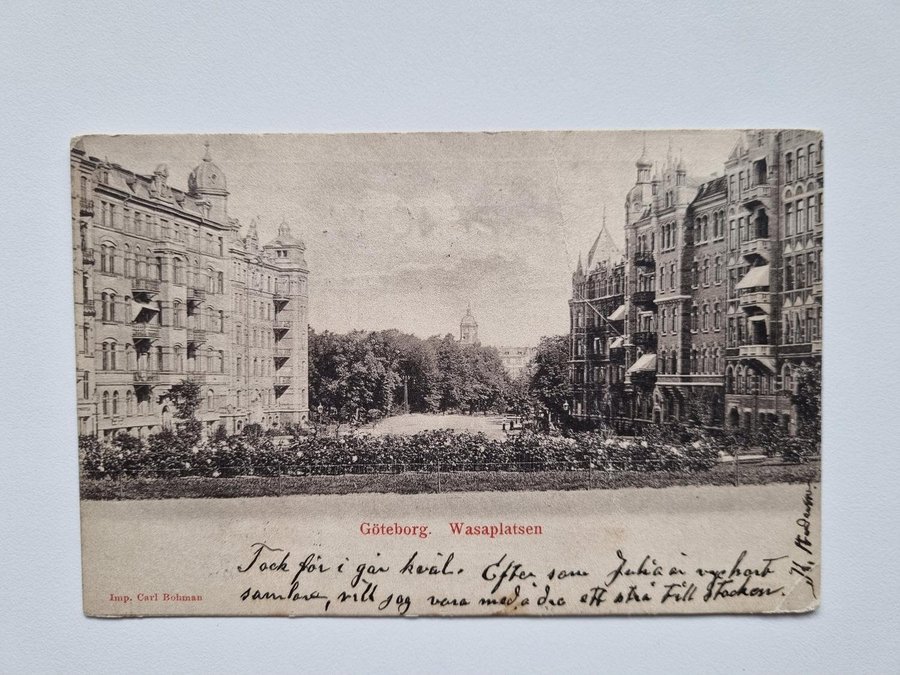 Göteborg. Wasaplatsen
Tack för i går kväl. Efter som Julia är vyhort
samlare, vill jag vara med å dra ett strå till stacken.
Imp. Carl Bohman